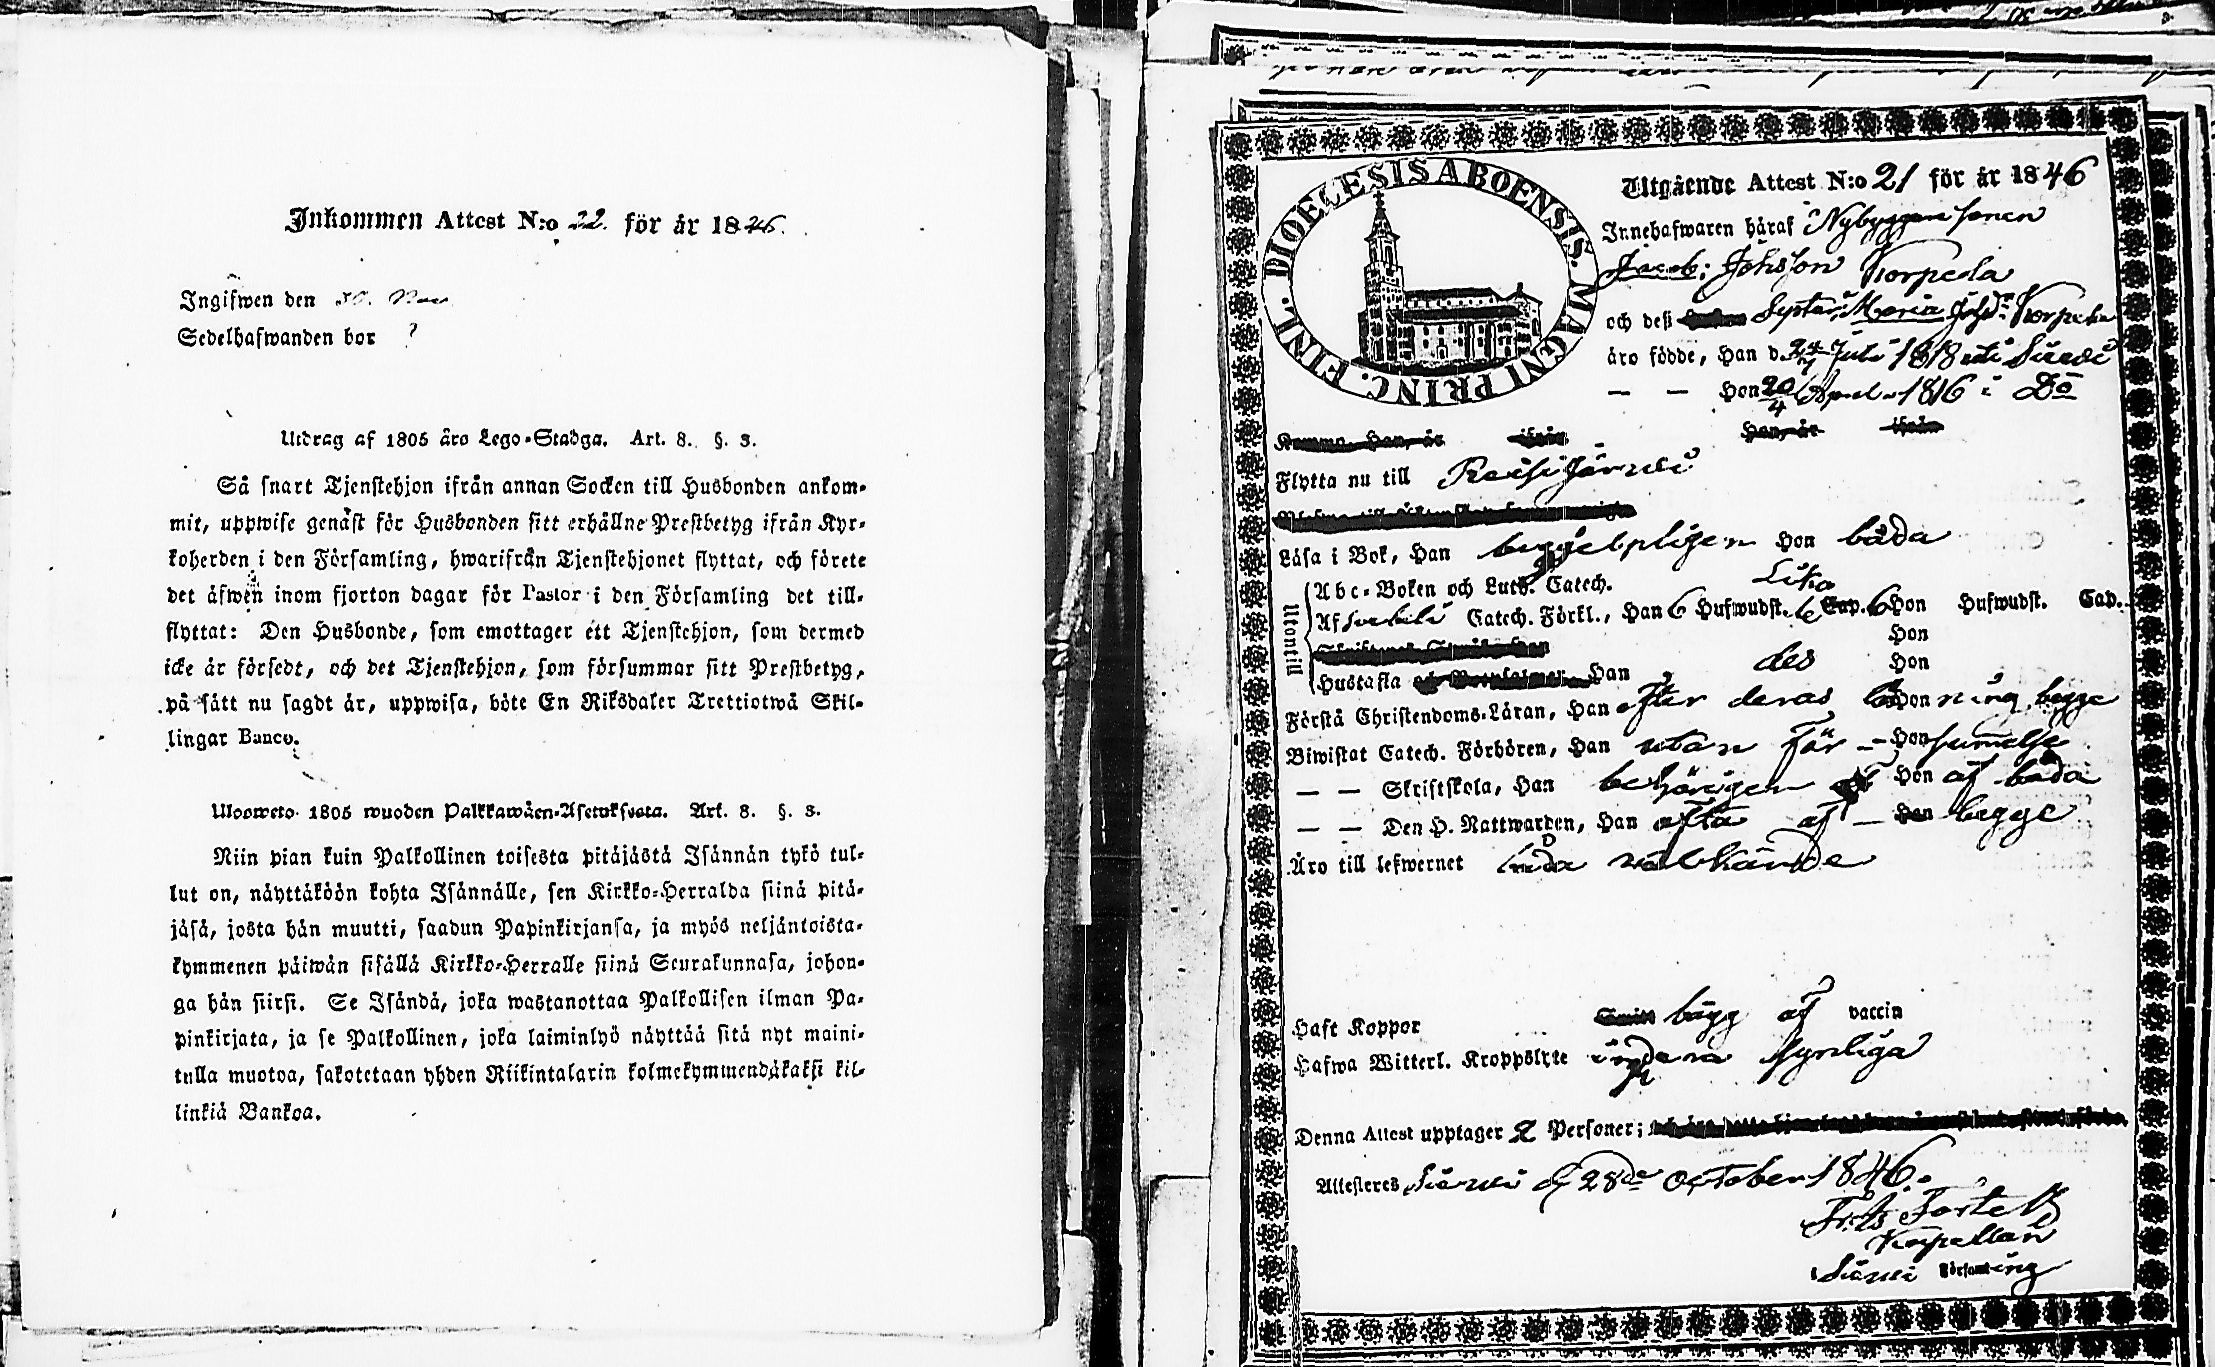 Inkommen Attest N:o 22. för år 1846.
Ingifwen den 30. Nov
Sedelhafwanden bor ?
Utdrag af 1805 års Lego-Stadga. Art. 8. §. 3.
Så snart Tjenstehjon ifrån annan Socken till Husbonden ankom-
mit, uppwise genast för Husbonden sitt erhållne Prestbetyg ifrån Kyr-
koherden i den Församling, hwarifrån Tjenstehjonet flyttat, och förete
det äfwen inom fjorton dagar för Pastor i den Församling det till-
flyttat: Den Husbonde, som emottager ett Tjenstehjon, som dermed
icke är försedt, och det Tjenstehjon, som försummar sitt Prestbetyg,
på sätt nu sagdt är, uppwisa, böte En Riksdaler Trettiotwå Skil-
lingar Banco.
Ulosweto 1805 wuoden Palkkawäen-Asetuksesta. Art. 8. §. 3.
Niin pian kuin Palkollinen toisesta pitäjästä Isännän tykö tul-
lut on, näyttäköön kohta Isännälle, sen Kirkko-Herralda siinä pitä-
jäsä, josta hän muutti, saadun Papinkirjansa, ja myös neljäntoista-
kymmenen päiwän sisällä Kirkko-Herralle siinä Seurakunnasa, johon-
ga hän siirsi. Se Isändä, joka wastanottaa Palkollisen ilman Pa-
pinkirjata, ja se Palkollinen, joka laiminlyö näyttää sitä nyt maini-
tulla muotoa, sakotetaan yhden Riikintalarin kolmekymmendäkaksi kil-
linkiä Bankoa.
DIOECESIS ABOENSIS. MAGNI PRINC. FINL.
Utgående Attest N:o 21 för år 1846
Innehafwaren häraf Nybyggare sonen
Jacob Johsson Korpela
och dess Syster Maria Johsdr Korpela
äro födde, Han d. 24/7 Juli 1818 uti Siewi
— — Hon 20/4 April 1816 i Do
Komma Han, år ifrån Hon, år ifrån
Flytta nu till Reisijärwi
Läsa i Bok, Han begge Hon båda
Utontill
Abc-Boken och Luth. Catech. Lika
Af Catech. Förkl., Han 6 Hufwudst. 6 Cap. 6 Hon Hufwudst. Cap.
Hon
Hustafla Han des Hon
Förstå Christendoms-Läran, Han efter deras Hon begge
Biwistat Catech. Förhören, Han utan för - Hon summelse
— — Skriftskola, Han behörigen Hon af båda
— — Den H. Nattwarden, Han ofta af - Hon begge
Äro till lefwernet båda wälkände
Haft Koppor bägg af vaccin
Hafwa Witterl. Kroppslyte inga synliga
Denna Attest upptager 2 Personer;
Attesteras Siewi d 28de October 1846.
Kapellan
Siewi Församling